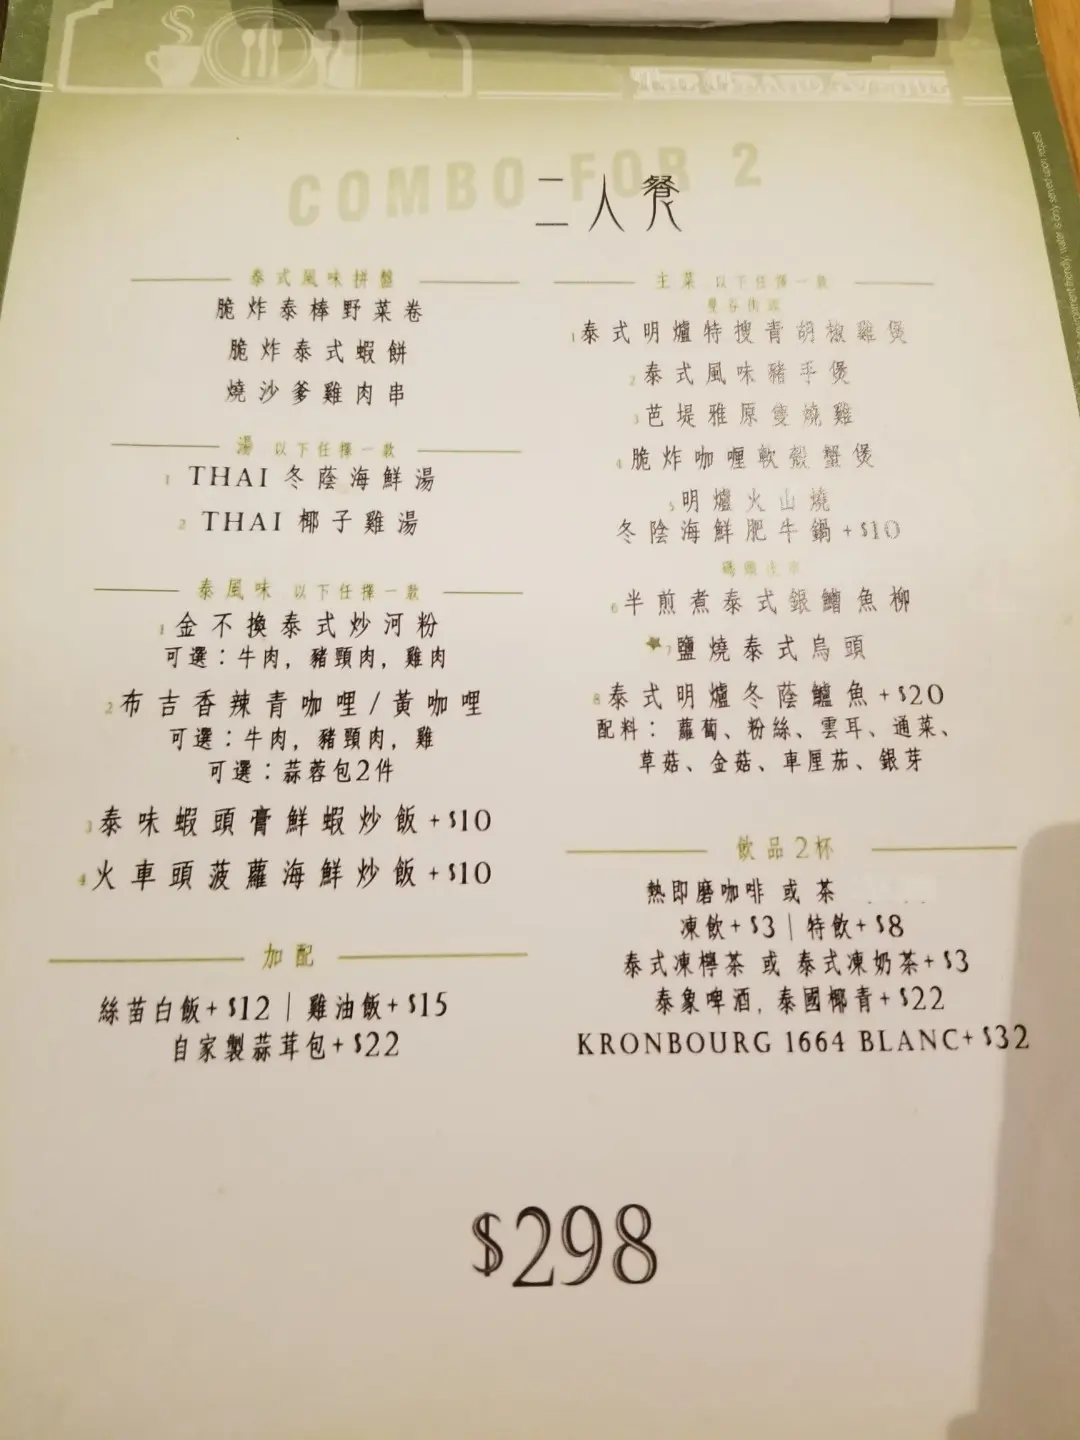 COMBO FOR 2
二人餐
泰式風味拼盤
脆炸泰棒野菜卷
脆炸泰式蝦餅
燒沙爹雞肉串
湯 以下任擇一款
1 THAI 冬蔭海鮮湯
2 THAI 椰子雞湯
泰風味 以下任擇一款
1 金不換泰式炒河粉
可選：牛肉, 豬頸肉, 雞肉
2 布吉香辣青咖哩/黃咖哩
可選：牛肉, 豬頸肉, 雞
可選：蒜蓉包2件
3 泰味蝦頭膏鮮蝦炒飯+$10
4 火車頭菠蘿海鮮炒飯+$10
加配
絲苗白飯+$12 | 雞油飯+$15
自家製蒜茸包+$22
主菜 以下任擇一款
曼谷街頭
1 泰式明爐特搜青胡椒雞煲
2 泰式風味豬手煲
3 芭堤雅原隻燒雞
4 脆炸咖喱軟殼蟹煲
5 明爐火山燒
冬陰海鮮肥牛鍋+$10
6 半煎煮泰式銀鱈魚柳
7 鹽燒泰式烏頭
8 泰式明爐冬蔭鱸魚+$20
配料：蘿蔔、粉絲、雲耳、通菜、
草菇、金菇、車厘茄、銀芽
飲品2杯
熱即磨咖啡 或 茶
凍飲+$3 | 特飲+$8
泰式凍檸茶 或 泰式凍奶茶+$3
泰象啤酒, 泰國椰青+$22
KRONBOURG 1664 BLANC+$32
$298